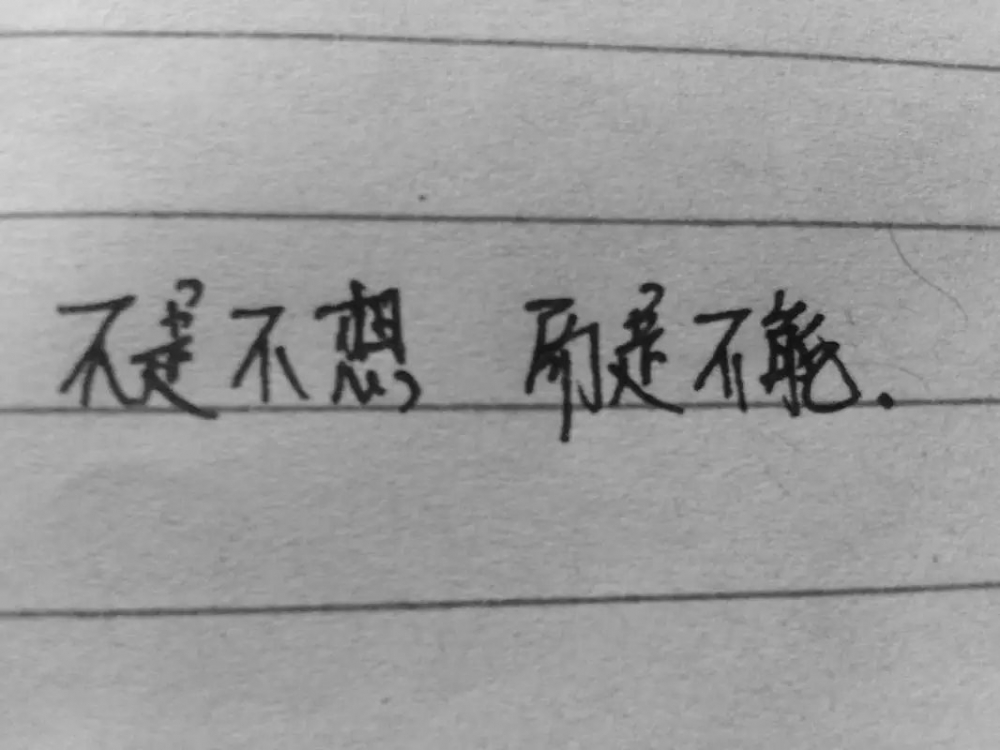 不是不想 而是不能.